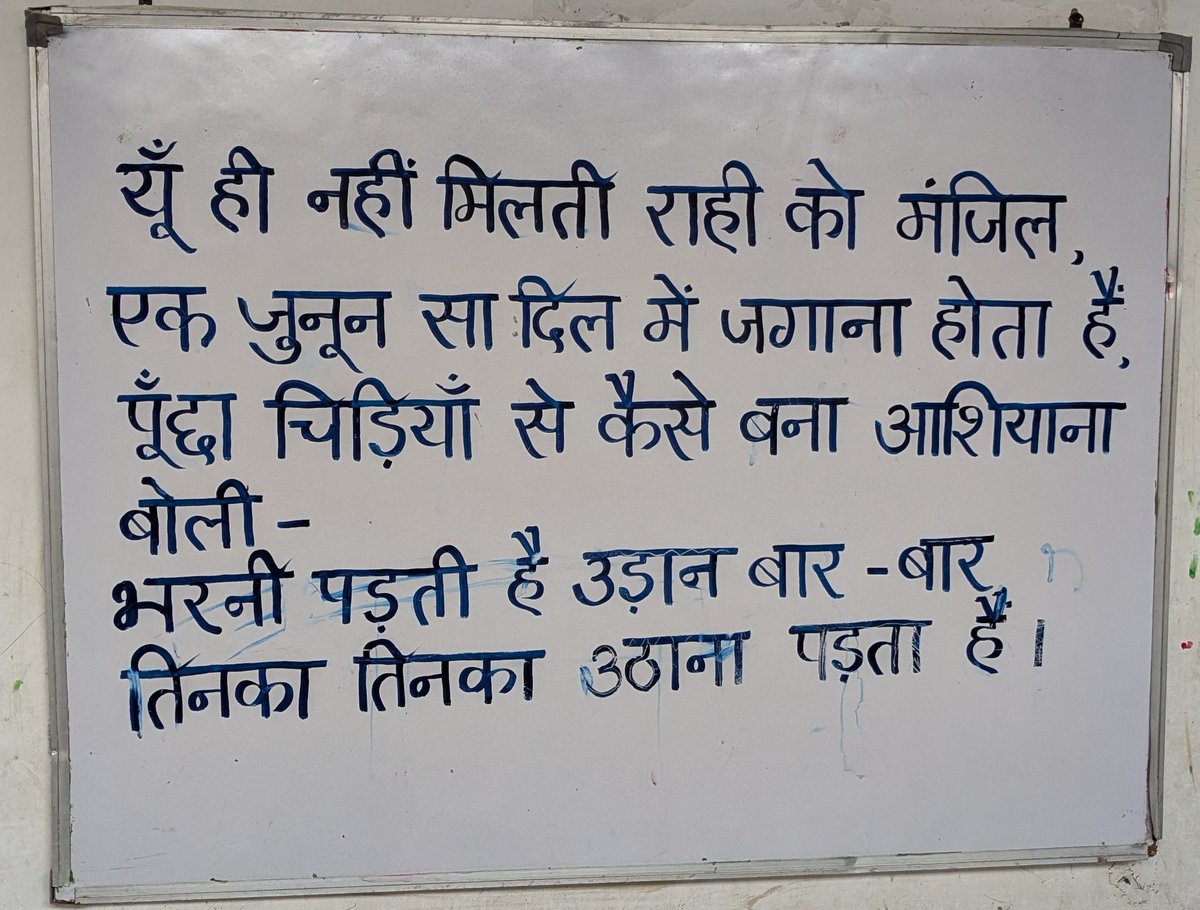 यूँ ही नहीं मिलती राही को मंजिल,
एक जुनून सा दिल में जगाना होता हैं,
पूँछा चिड़ियाँ से कैसे बना आशियाना
बोली -
भरनी पड़ती है उड़ान बार - बार,
तिनका तिनका उठाना पड़ता हैं।